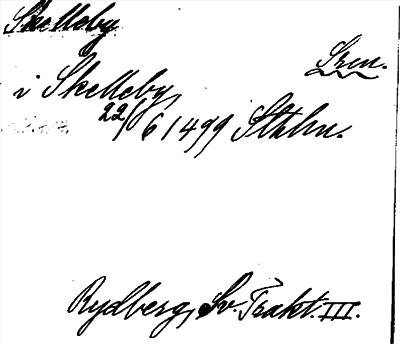 Skelleby
Srm.
i Skelleby
22/6 1499 Sthlm.
Rydberg, Sv. Trakt. III.